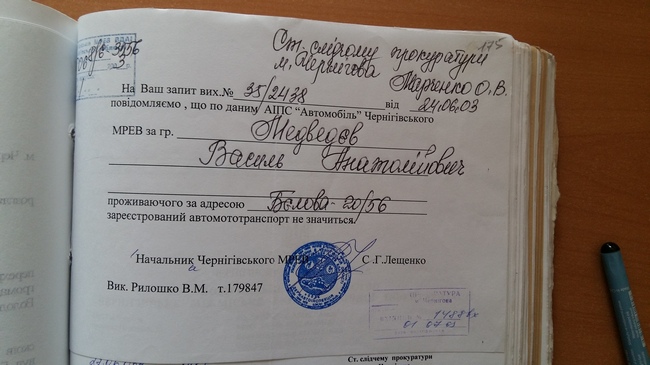 175
Ст. слідчому прокуратури
м. Чернігова
Марченко О.В.
3156
На Ваш запит вих.№ 35/2438 від 24.06.03
повідомляємо , що по даним АІПС "Автомобіль" Чернігівського
МРЕВ за гр. Медведєв
Василь Анатолійович
проживаючого за адресою Бєлова-20/56
зареєстрований автомототранспорт не значиться.
Начальник Чернігівського МРЕВ С .Г.Лещенко
Вик. Рилошко В.М. т.179847
01 07 03
Ст. слідчему прокуратури